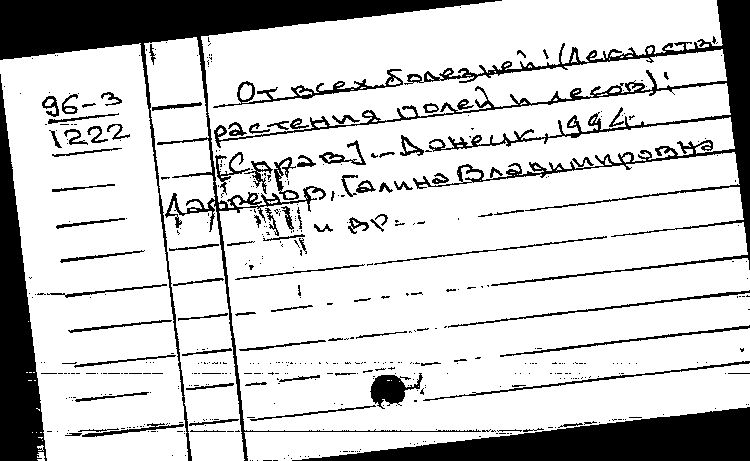 96-3
1222
От всех болезней! (Лекарств.
растения полей и лесов):
[Справ]. – Донецк, 1994.
Лавренов, Галина Владимировна
и др.